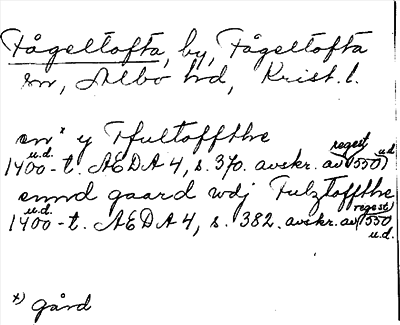 Fågeltofta, by, Fågeltofta
sn, Albo hd, Krist. l.
en x) y Ffultoffthe
1400 u.d. - t. ÆDA 4, s. 370. avskr. av regest 1550 u.d.
ennd gaard wdj Fulztoffthe
1400 u.d. - t. ÆDA 4, s. 382. avskr. av regest 1550 u.d.
x) gård